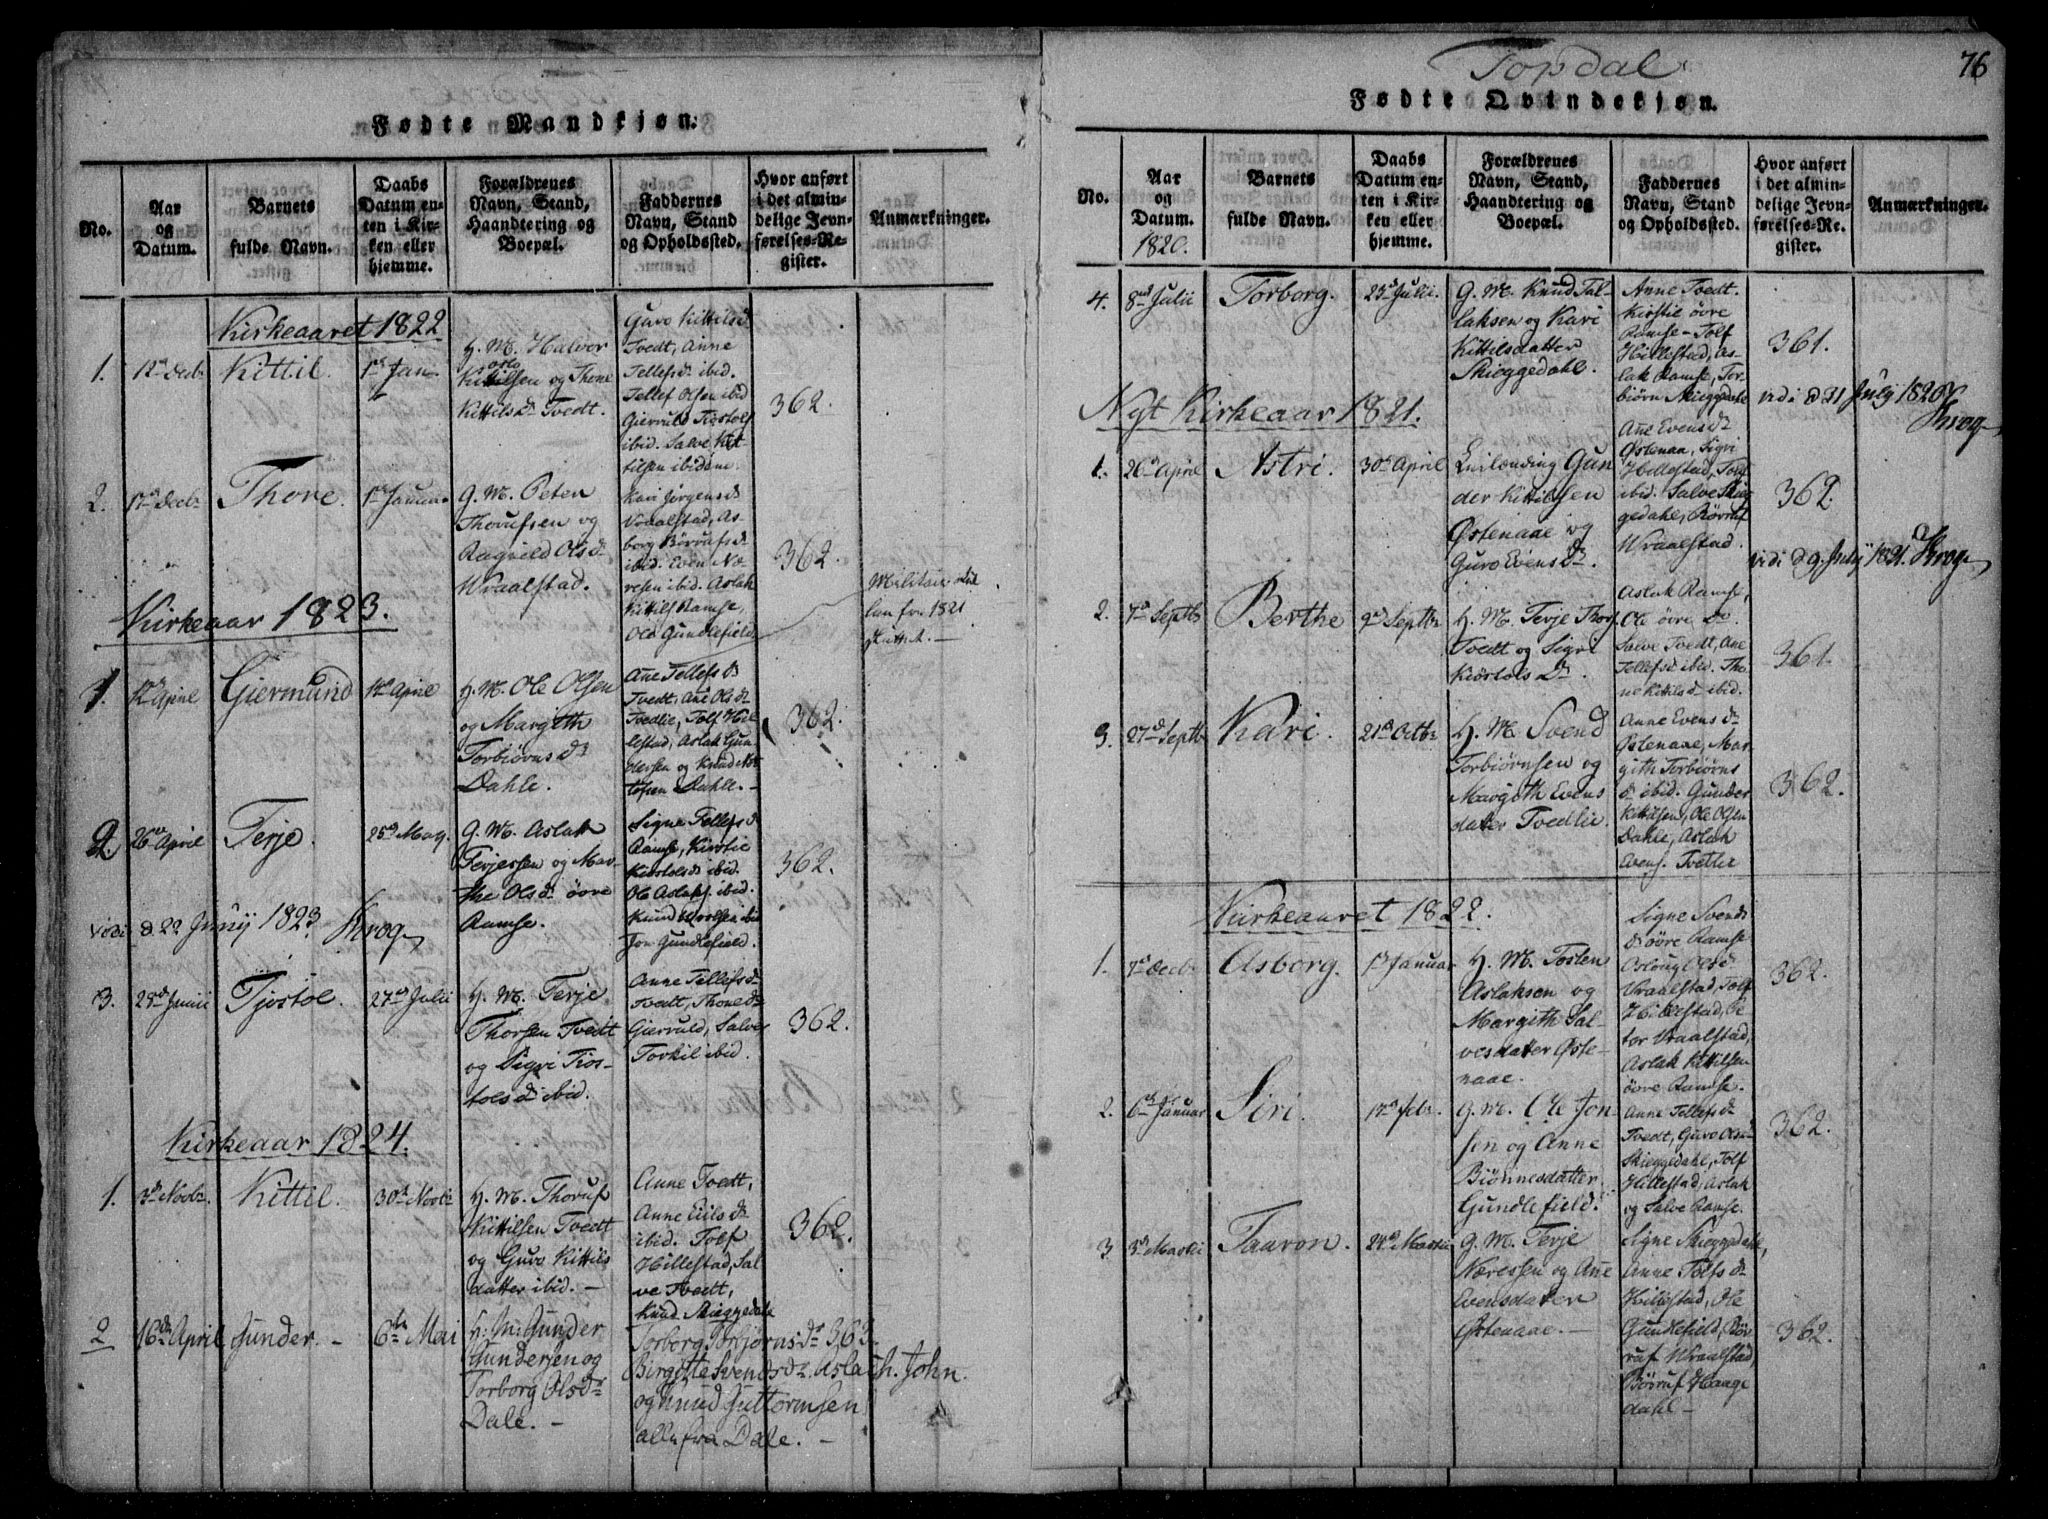 Fødte Mandkjøn.
No.
Aar
og
Datum.
Barnets
fulde Navn.
Daabs
Datum en-
ten i Kir-
ken eller
hjemme.
Forældrenes
Navn, Stand,
Haandtering og
Boepæl.
Faddernes
Navn, Stand
og Opholdssted.
Hvor anført
i det almin-
delige Jevn-
førelses-Re-
gister.
Anmærkninger.
Kirkeaaret 1822
1.
12te Decbr
Kittil.
1ste Jan.
H. M. Halvor
Kittilsen og Thone
Kittilsdr Tvedt.
Guro Kittilsd
Tvedt, Anne
Tellefsdr ibid.
Tellef Olsen ibid
Giervuld Tiostolf
ibid. Salve Kit-
tilsen ibidem.
362.
2.
17de Decbr
Thore.
1ste Januar
G. M. Peter
Thorufsen og
Ragnild Olsdr
Wraalstad.
Kari Jørgensdr
Vraalstad, As-
borg Børrufsdr
ibid. Even Næ-
resen ibid. Aslak
Kittils. Ramse,
Ole Gundlefield
362.
Militair
len for 1821
sluttet. —
Kirkeaar 1823.
1.
12te April
Giermund
12te April
H. M. Ole Olsen
og Margith
Torbiørnsdr
Dahle.
Ane Tellefsdr
Tvedt, Ane Olsdr
Tvedlie, Tolf Hil-
lestad, Aslak Gun-
dersen og Knud
Dahle. —
362.
2
26de April
Terje.
25de May.
G. M. Aslak
Terjessen og Mar-
the Olsdr øvre
Ramse.
Signe Tellefsdr
Ramse, Kirstie
Kiostolsdr ibid.
Ole Aslaks. ibid.
Knud ibid
Jon Gundlefield.
362.
vidi d 22 Junij 1823. Krog
3.
28de Junii
Tjostol.
27de Julii
H. M. Terje
Thorsen Tvedt
og Sigri Tios-
tolsdr ibid.
Anne Tellefsdr
Tvedt, Thone dr
Giervuld, Salve
Torkil ibid.
362.
Kirkeaar 1824.
1.
3de Novbr.
Kittil.
30te Novbr
H. M. Thoruf
Kittilsen Tvedt
og Guro Kittils
datter ibid. —
Anne Tvedt,
Anne Eilsdr
ibid. Tolf
Hillestad, Sal
ve Tvedt,
Knud Skieggedale
362.
2
16de April
Gunder. —
6te Mai
H. M. Gunder
Gundersen og
Torborg Olsdr
Dale. —
Torborg Torbjørnsdr
Birgitte Svensdr. Aslak. John.
og Knud Guttormsen
alle fra Dale. —
363.
Topdal
76
Fødte Qvindekjøn.
No.
Aar
og
Datum.
1820.
Barnets
fulde Navn.
Daabs
Datum en-
ten i Kir-
ken eller
hjemme.
Forældrenes
Navn, Stand,
Haandtering og
Boepæl.
Faddernes
Navn, Stand
og Opholdssted.
Hvor anført
i det almin-
delige Jevn-
førelses-Re-
gister.
Anmærkninger.
4.
8de Julii
Torborg.
23de Julii.
G. M. Knud Tal-
laksen og Kari
Kittilsdatter
Skieggedahl.
Anne Tvedt.
Kirstie øvre
Ramse – Tolf
Hillestad, As-
lak Ramse, Tor-
biørn Skieggedahl
361.
vidi d 31 July 1820. Krog
Nyt Kirkeaar 1821.
1.
26de April
Astri.
30te April
Gun
der Kittilsen
Østenaae og
Guro Evensdr.
Ane Evensdr
Østenaa, Sigri
Hillestad, Tolf
ibid. Salve Skieg
gedahl, Børruf
Wraalstad.
362.
vidi d 9 July 1821. Krog
2.
7de Septbr
Berthe
9de Septbr
H. M. Terje Thors.
Tvedt og Sigri
Kiostols Dr.
Aslak Ramse,
Ole øvre do.
Salve Tvedt, Ane
Tellefsdr ibid. Tho-
ne Kittilsdr ibid.
361.
3.
27de Septbr
Kari.
21de Octbr
H. M. Svend
Torbiørnsen og
Margith Evens
datter Tvedlie.
Anne Evensdr
Østenaae, Mar
gith Torbiørns
dr ibid. Gunder
Kittilsen, Ole Olsen
Dahle, Aslak
Evens. Tvetlie
362.
Kirkeaaret 1822.
1.
7de Decbr
Asborg.
1ste Januar
H. M. Tosten
Aslaksen og
Margith Sal-
vesdatter Øste-
naae.
Signe Svends
dr øvre Ramse
Asloug Olsdr
Vraalstad, Tolf
Hillestad, Pe-
ter Vraalstad,
Aslak Kittilsen
øvre Ramse.
362.
2.
6te Januar
Siri.
17de Febr.
G. M. Ole Jon-
sen og Anne
Biønnesdatter
Gundlefield.
Anne Tellefsdr
Tvedt, Guro Olsd
Skieggedahl, Tolf
Hillestad, Aslak
og Salve Ramse.
362.
3
3de Martii
Taaron.
24de Martii
G. M. Terje
Næressen og Ane
Evensdatter
Østenaae. —
Signe Skieggedahl,
Anne Tolfsdr
Hillestad, Ole
Gundlefield, Bør-
ruf Wraalstad,
Børuf Hauge
dahl —
362.